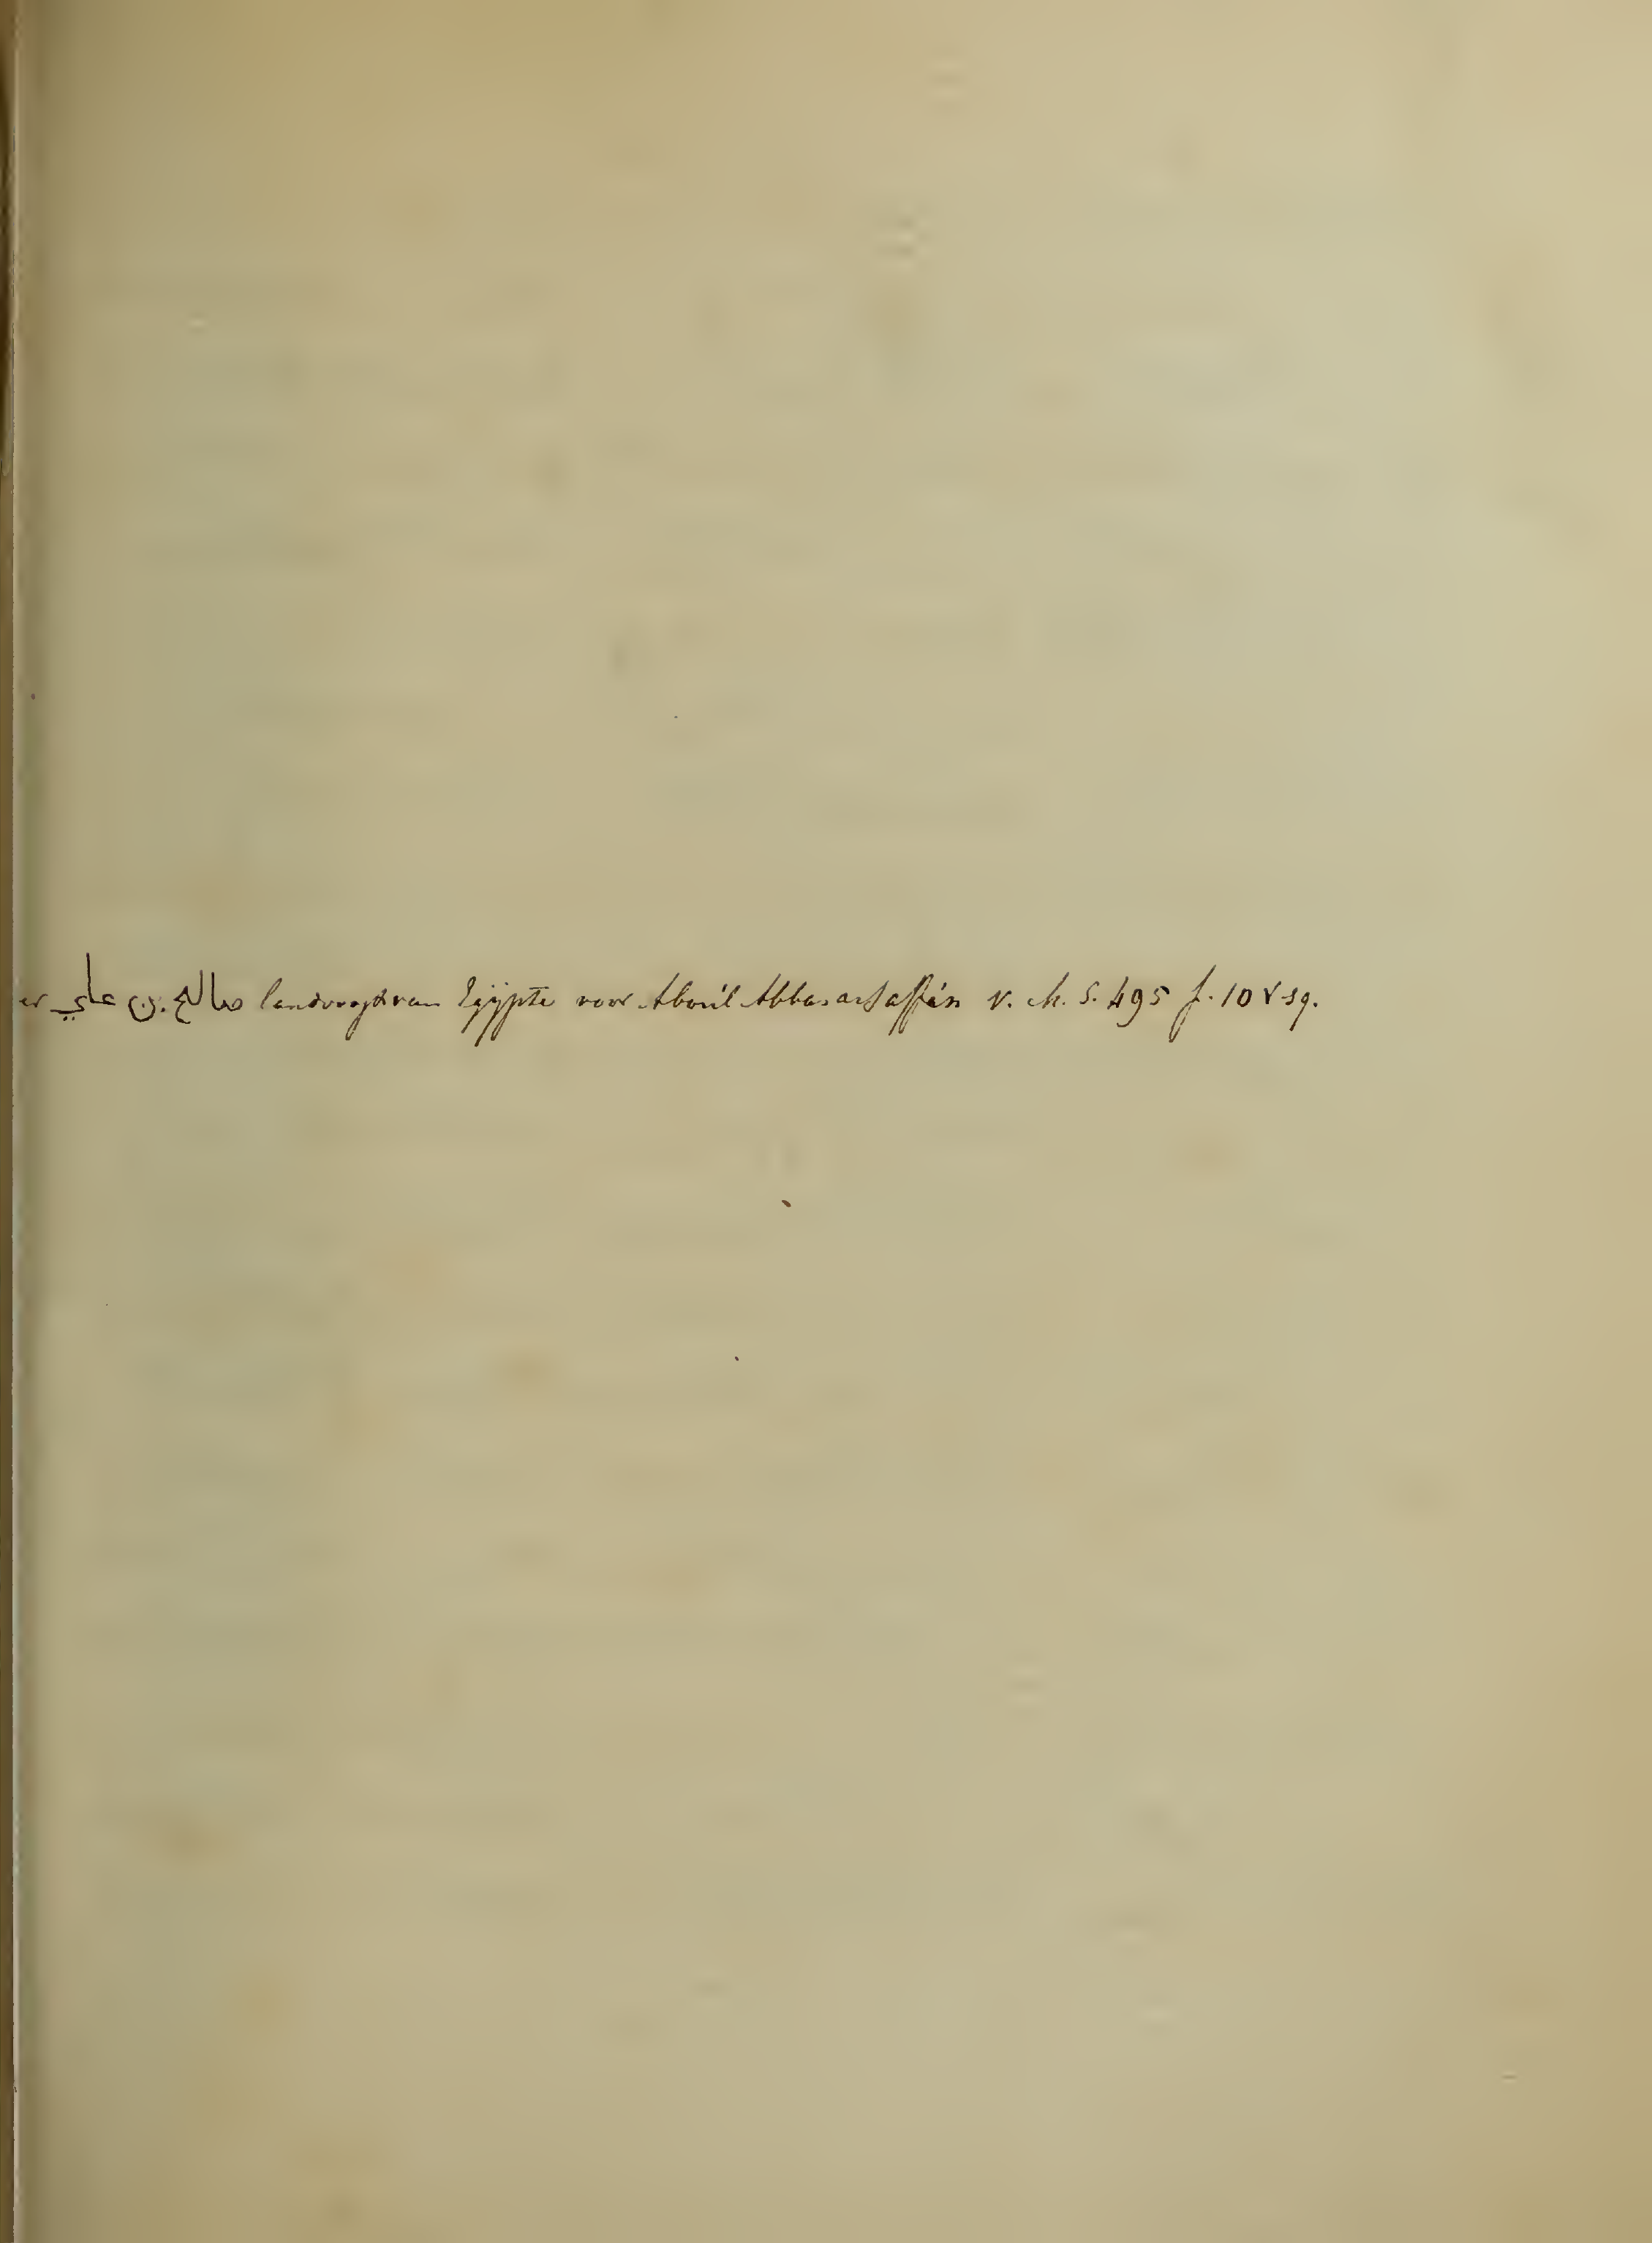 er صالح بن علي landvoogd van Egÿpte voor Aboúl Abbas as Saffán v. M. S. 495 f. 10 v sq.